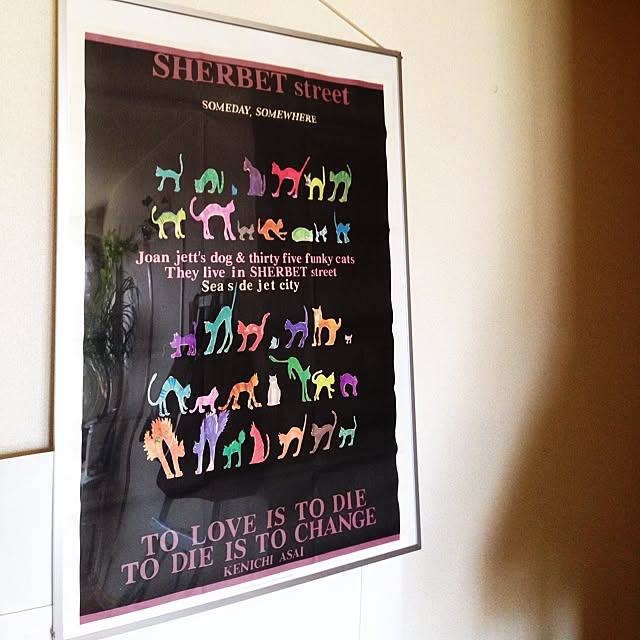 SHERBET street
SOMEDAY, SOMEWHERE
Joan jett's dog & thirty five funky cats
They live in SHERBET street
Sea s de jet city
TO LOVE IS TO DIE
TO DIE IS TO CHANGE
KENICHI ASAI